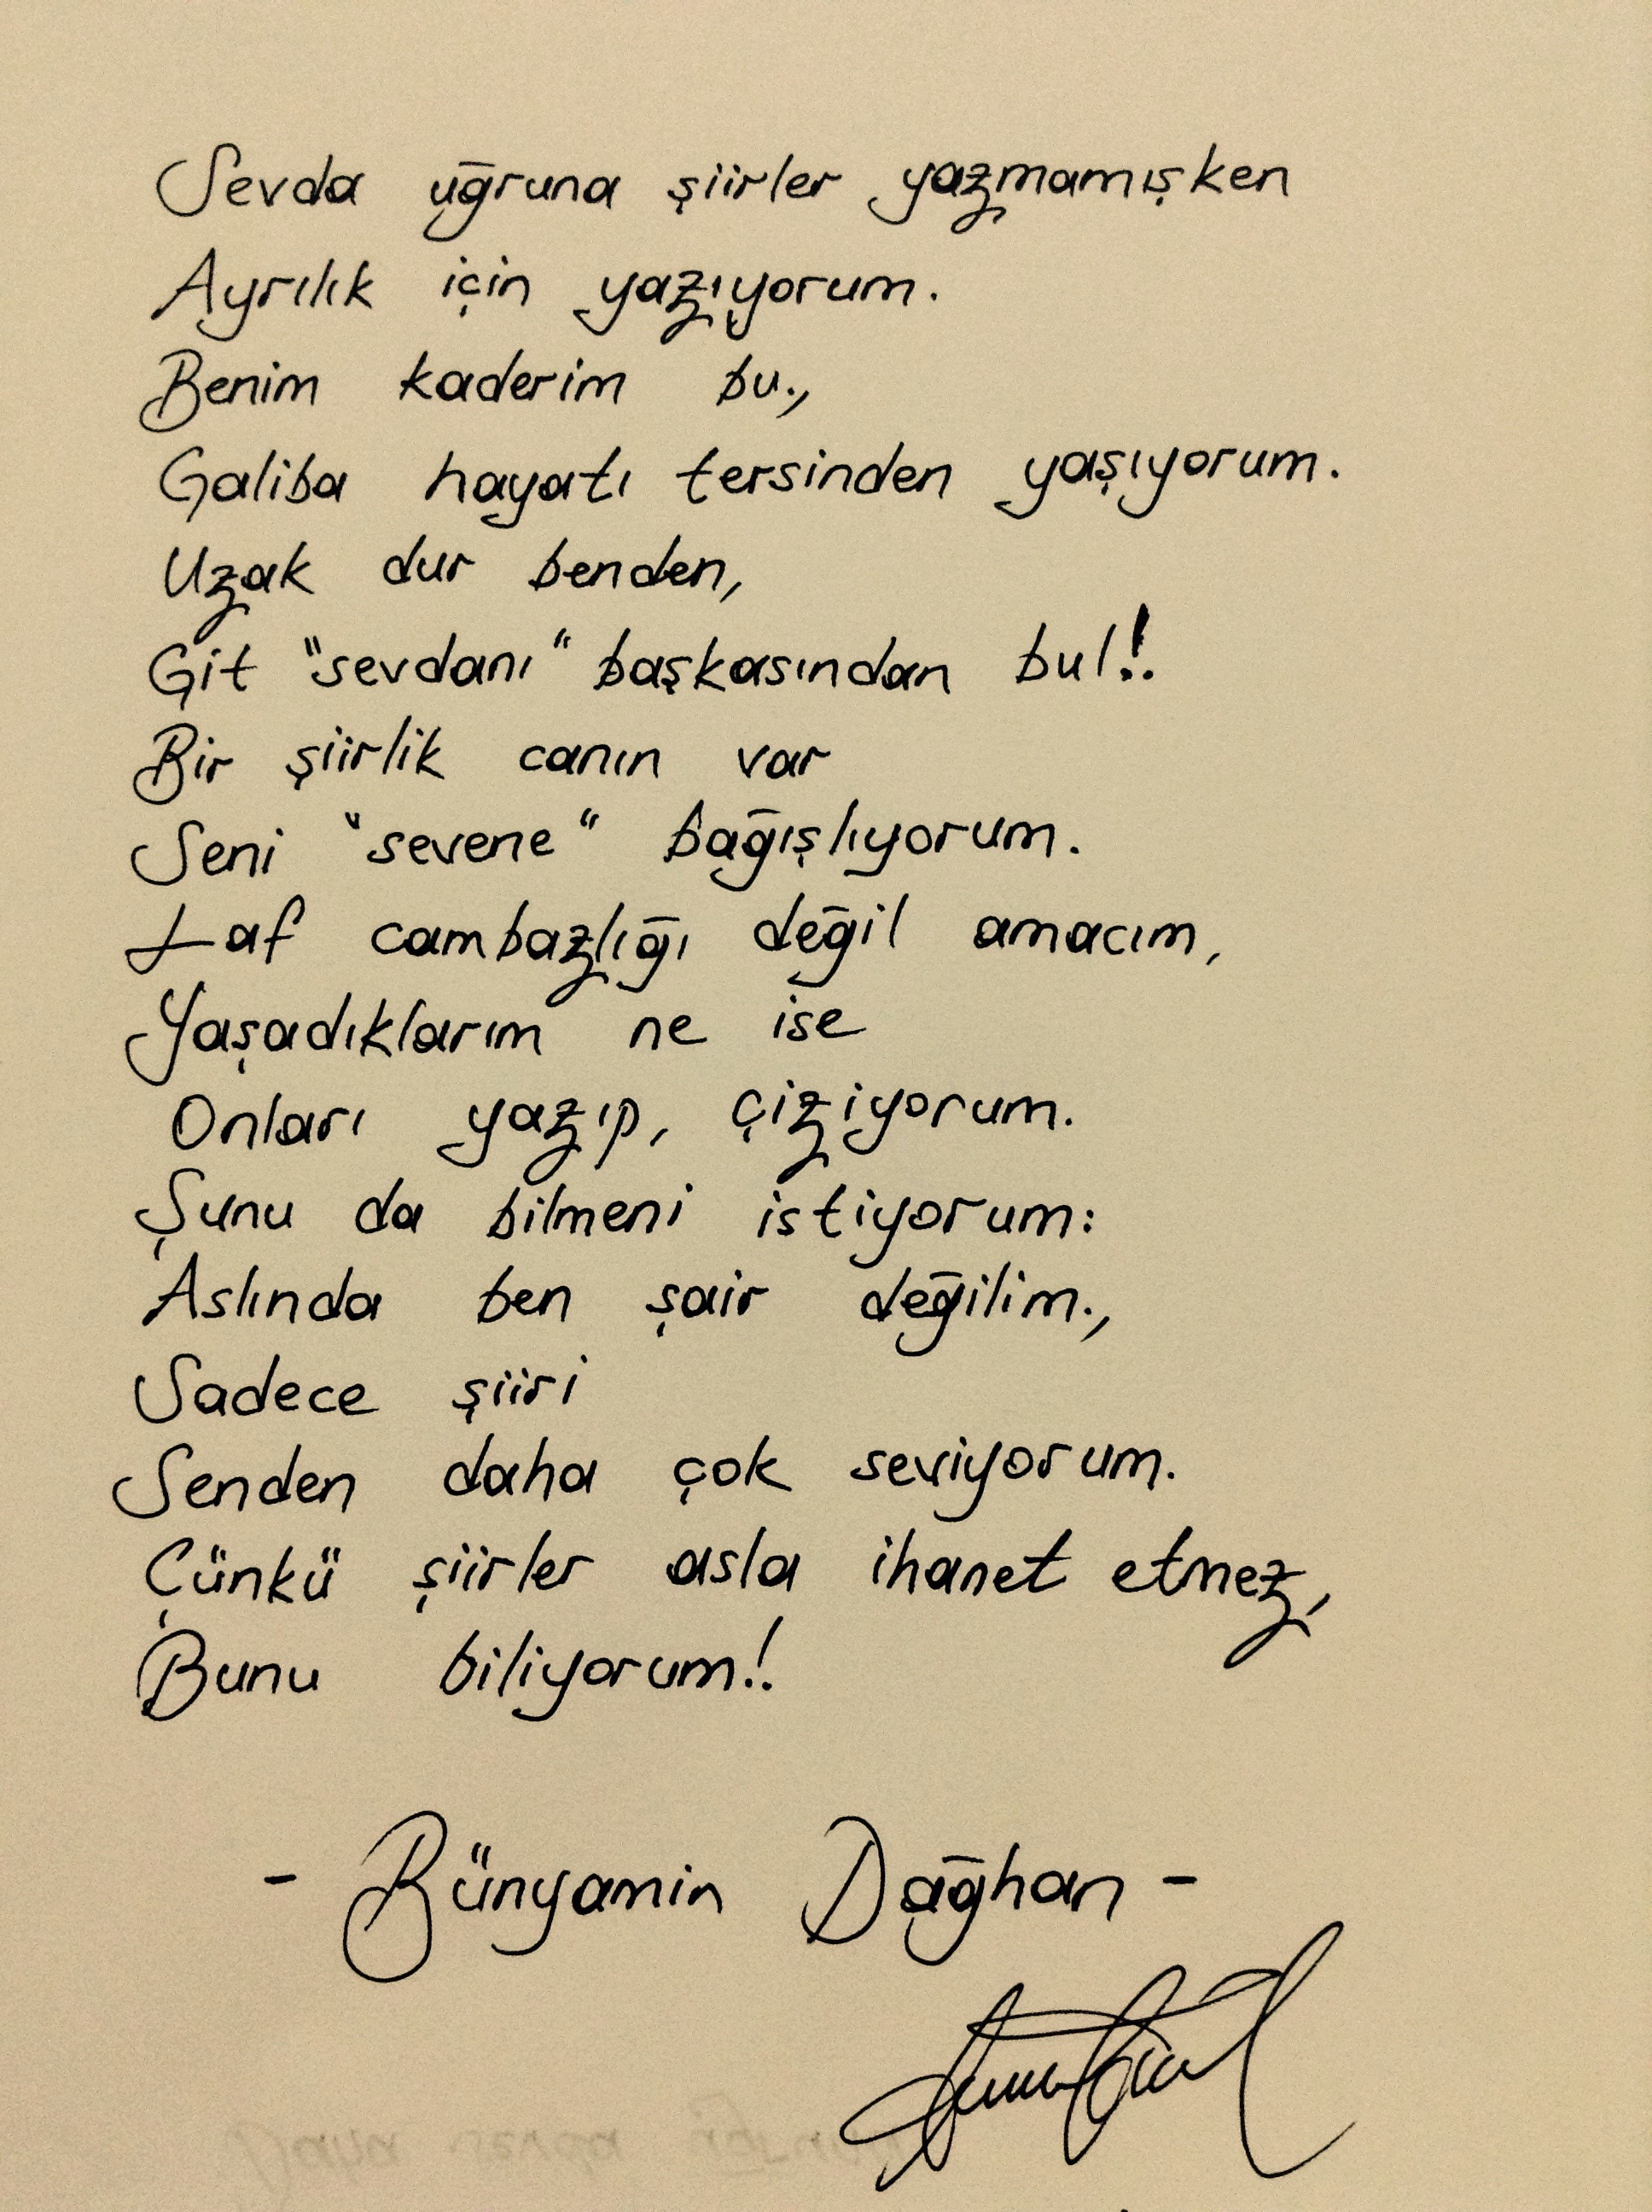 Sevda uğruna şiirler yazmamışken
Ayrılık için yazıyorum.
Benim kaderim bu.,
Galiba hayatı tersinden yaşıyorum.
Uzak dur benden,
Git "sevdanı" başkasından bul!.
Bir şiirlik canın var
Seni "sevene" bağışlıyorum.
Laf cambazlığı değil amacım,
Yaşadıklarım ne ise
Onları yazıp, çiziyorum.
Şunu da bilmeni istiyorum:
Aslında ben şair değilim.,
Sadece şiiri
Senden daha çok seviyorum.
Çünkü şiirler asla ihanet etmez,
Bunu biliyorum!.
- Bünyamin Dağhan -